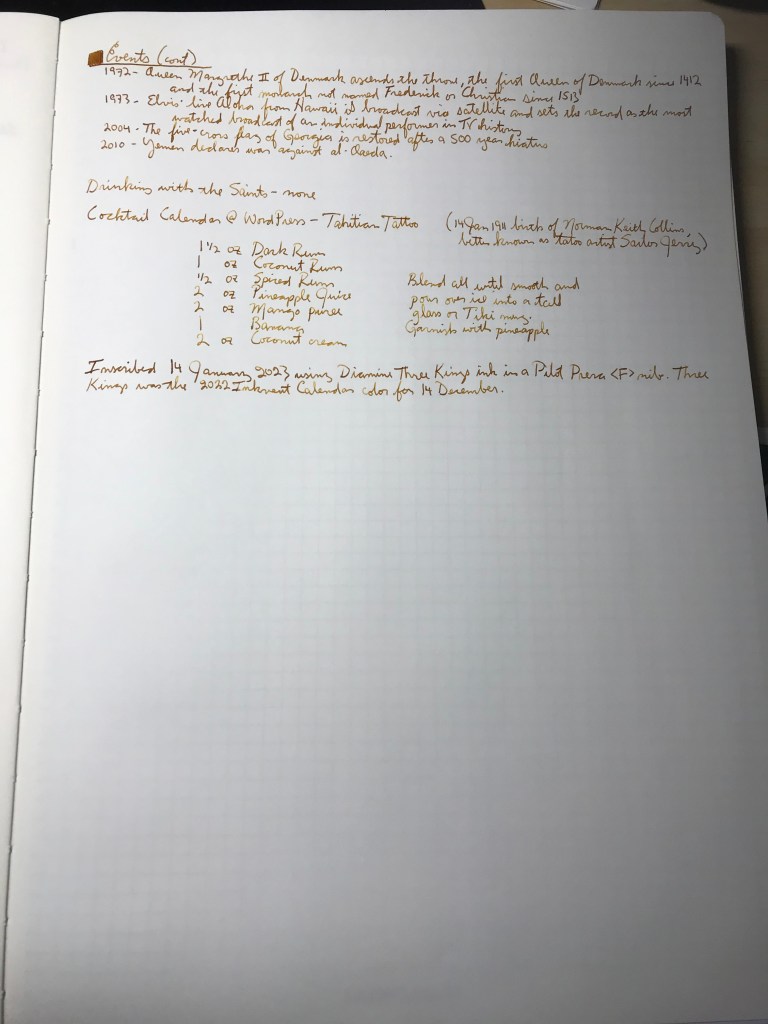 Events (cont)
1972 - Queen Margrethe II of Denmark ascends the throne, the first Queen of Denmark since 1412
and the first monarch not named Frederick or Christian since 1513
1973 - Elvis' live Aloha from Hawaii is broadcast via satellite and sets the record as the most
watched broadcast of an individual performer in TV history
2004 - The five-cross flag of Georgia is restored after a 500 year hiatus
2010 - Yemen declares war against al-Qaeda.
Drinking with the Saints - none
Cocktail Calendar @ WordPress - Tahitian Tattoo (14 Jan 1911 birth of Norman Keith Collins,
better known as tatoo artist Sailor Jerry)
1 1/2 oz Dark Rum
1 oz Coconut Rum
1/2 oz Spiced Rum
2 oz Pineapple Juice
2 oz Mango puree
1 Banana
2 oz Coconut cream
Blend all until smooth and
pour over ice into a tall
glass or Tiki mug.
Garnish with pineapple
Inscribed 14 January 2023 using Diamine Three Kings ink in a Pilot Prera <F> nib. Three
Kings was the 2022 Inkvent Calendar color for 14 December.